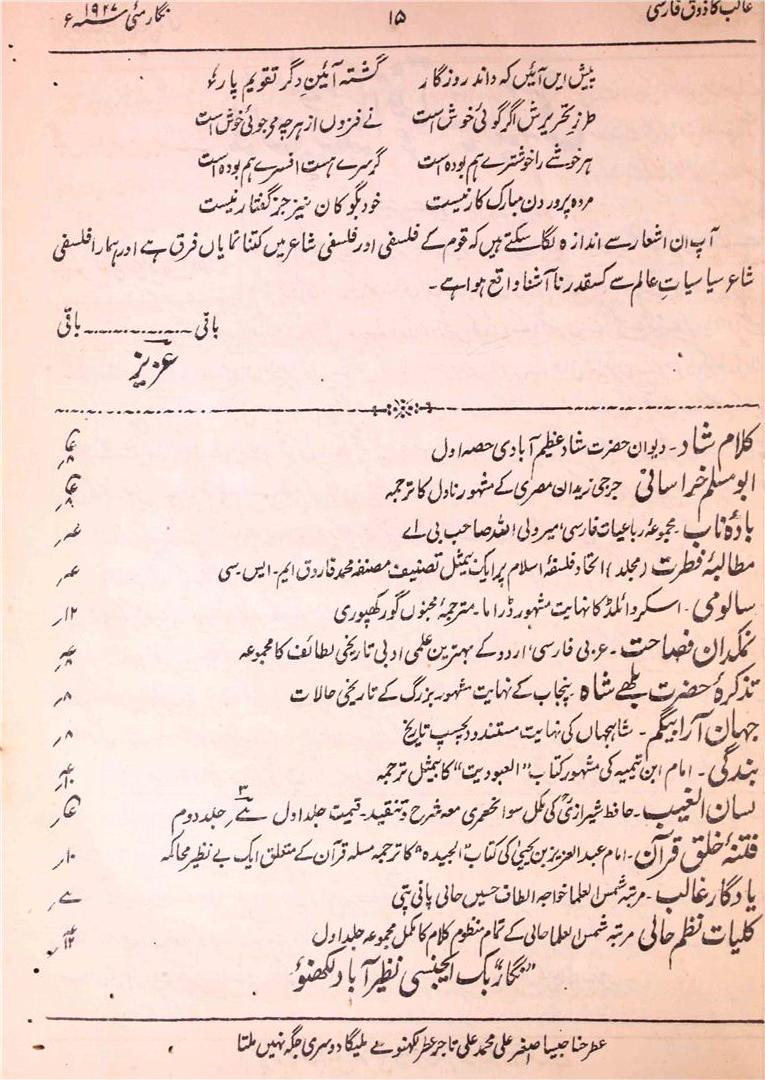 غالب کا ذوق فارسی ۱۵ نگار مئی ۱۹۲۷ء
پیش ایں آئیں کہ دارد روزگار گشتہ آئینِ دگر تقویم پار
طرزِ تحریرش اگر گوئی خوش است نے فزوں از ہرچہ می جوئی خوش است
ہر خوشے را خوشترے ہم بودہ است گر سرے ہست افسرے ہم بودہ است
مردہ پروردن مبارک کار نیست خود بگو کان نیز جز گفتار نیست
آپ ان اشعار سے اندازہ لگا سکتے ہیں کہ قوم کے فلسفی اور فلسفی شاعر میں کتنا نمایاں فرق ہے اور ہمارا فلسفی
شاعر سیاسیاتِ عالم سے کسقدر نا آشنا واقع ہوا ہے۔
باقی ............ باقی
عزیز
کلام شاد۔ دیوان حضرت شاد عظیم آبادی حصہ اول
ابو مسلم خراسانی جرجی زیدان مصری کے مشہور ناول کا ترجمہ
بادۂ ناب۔ مجموعۂ رباعیات فارسی، میر ولی اللہ صاحب بی اے
مطالبۂ فطرت (مجلد) اتحاد فلسفۂ اسلام پر ایک بیمثل تصنیف مصنفہ محمد فاروق ایم۔ ایس۔ سی
سالومی۔ اسکر وائلڈ کا نہایت مشہور ڈراما۔ مترجمۂ مجنوں گورکھپوری ۱۲؍
نمکدان فصاحت۔ عربی فارسی، اردو کے بہترین علمی ادبی تاریخی لطائف کا مجموعہ
تذکرۂ حضرت بلھے شاہ پنجاب کے نہایت مشہور بزرگ کے تاریخی حالات ۸؍
جہان آرا بیگم۔ شاہجہاں کی نہایت مستند و دلچسپ تاریخ ۸؍
بندگی۔ امام ابن تیمیہ کی مشہور کتاب "العبودیت" کا بیمثل ترجمہ
لسان الغیب۔ حافظ شیرازیؒ کی مکمل سوانحعمری معہ شرح و تنقید۔ قیمت جلد اول جلد دوم
فتنۂ خلق قرآن۔ امام عبدالعزیز بن یحییٰ کی کتاب "الحیدہ" کا ترجمہ مسلہ قرآن کے متعلق ایک بے نظیر محاکمہ ۱۰؍
یادگار غالب۔ مرتبہ شمس العلما خواجہ الطاف حسین حالی پانی پتی
کلیات نظم حالی مرتبہ شمس العلما حالی کے تمام منظوم کلام کا مکمل مجموعہ جلد اول
"نگار" بک ایجنسی نظیر آباد لکھنؤ
عطر حنا جیسا اصغر علی محمد علی تاجر عطر لکھنو سے ملیگا دوسری جگہ نہیں ملتا